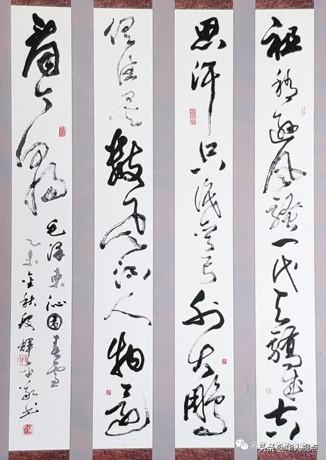 祖稍逊风騷一代天驕成吉
思汗只识弯弓射大鵰
俱往矣數风流人物还
看今朝
毛泽东沁园春雪
乙未金秋段輝